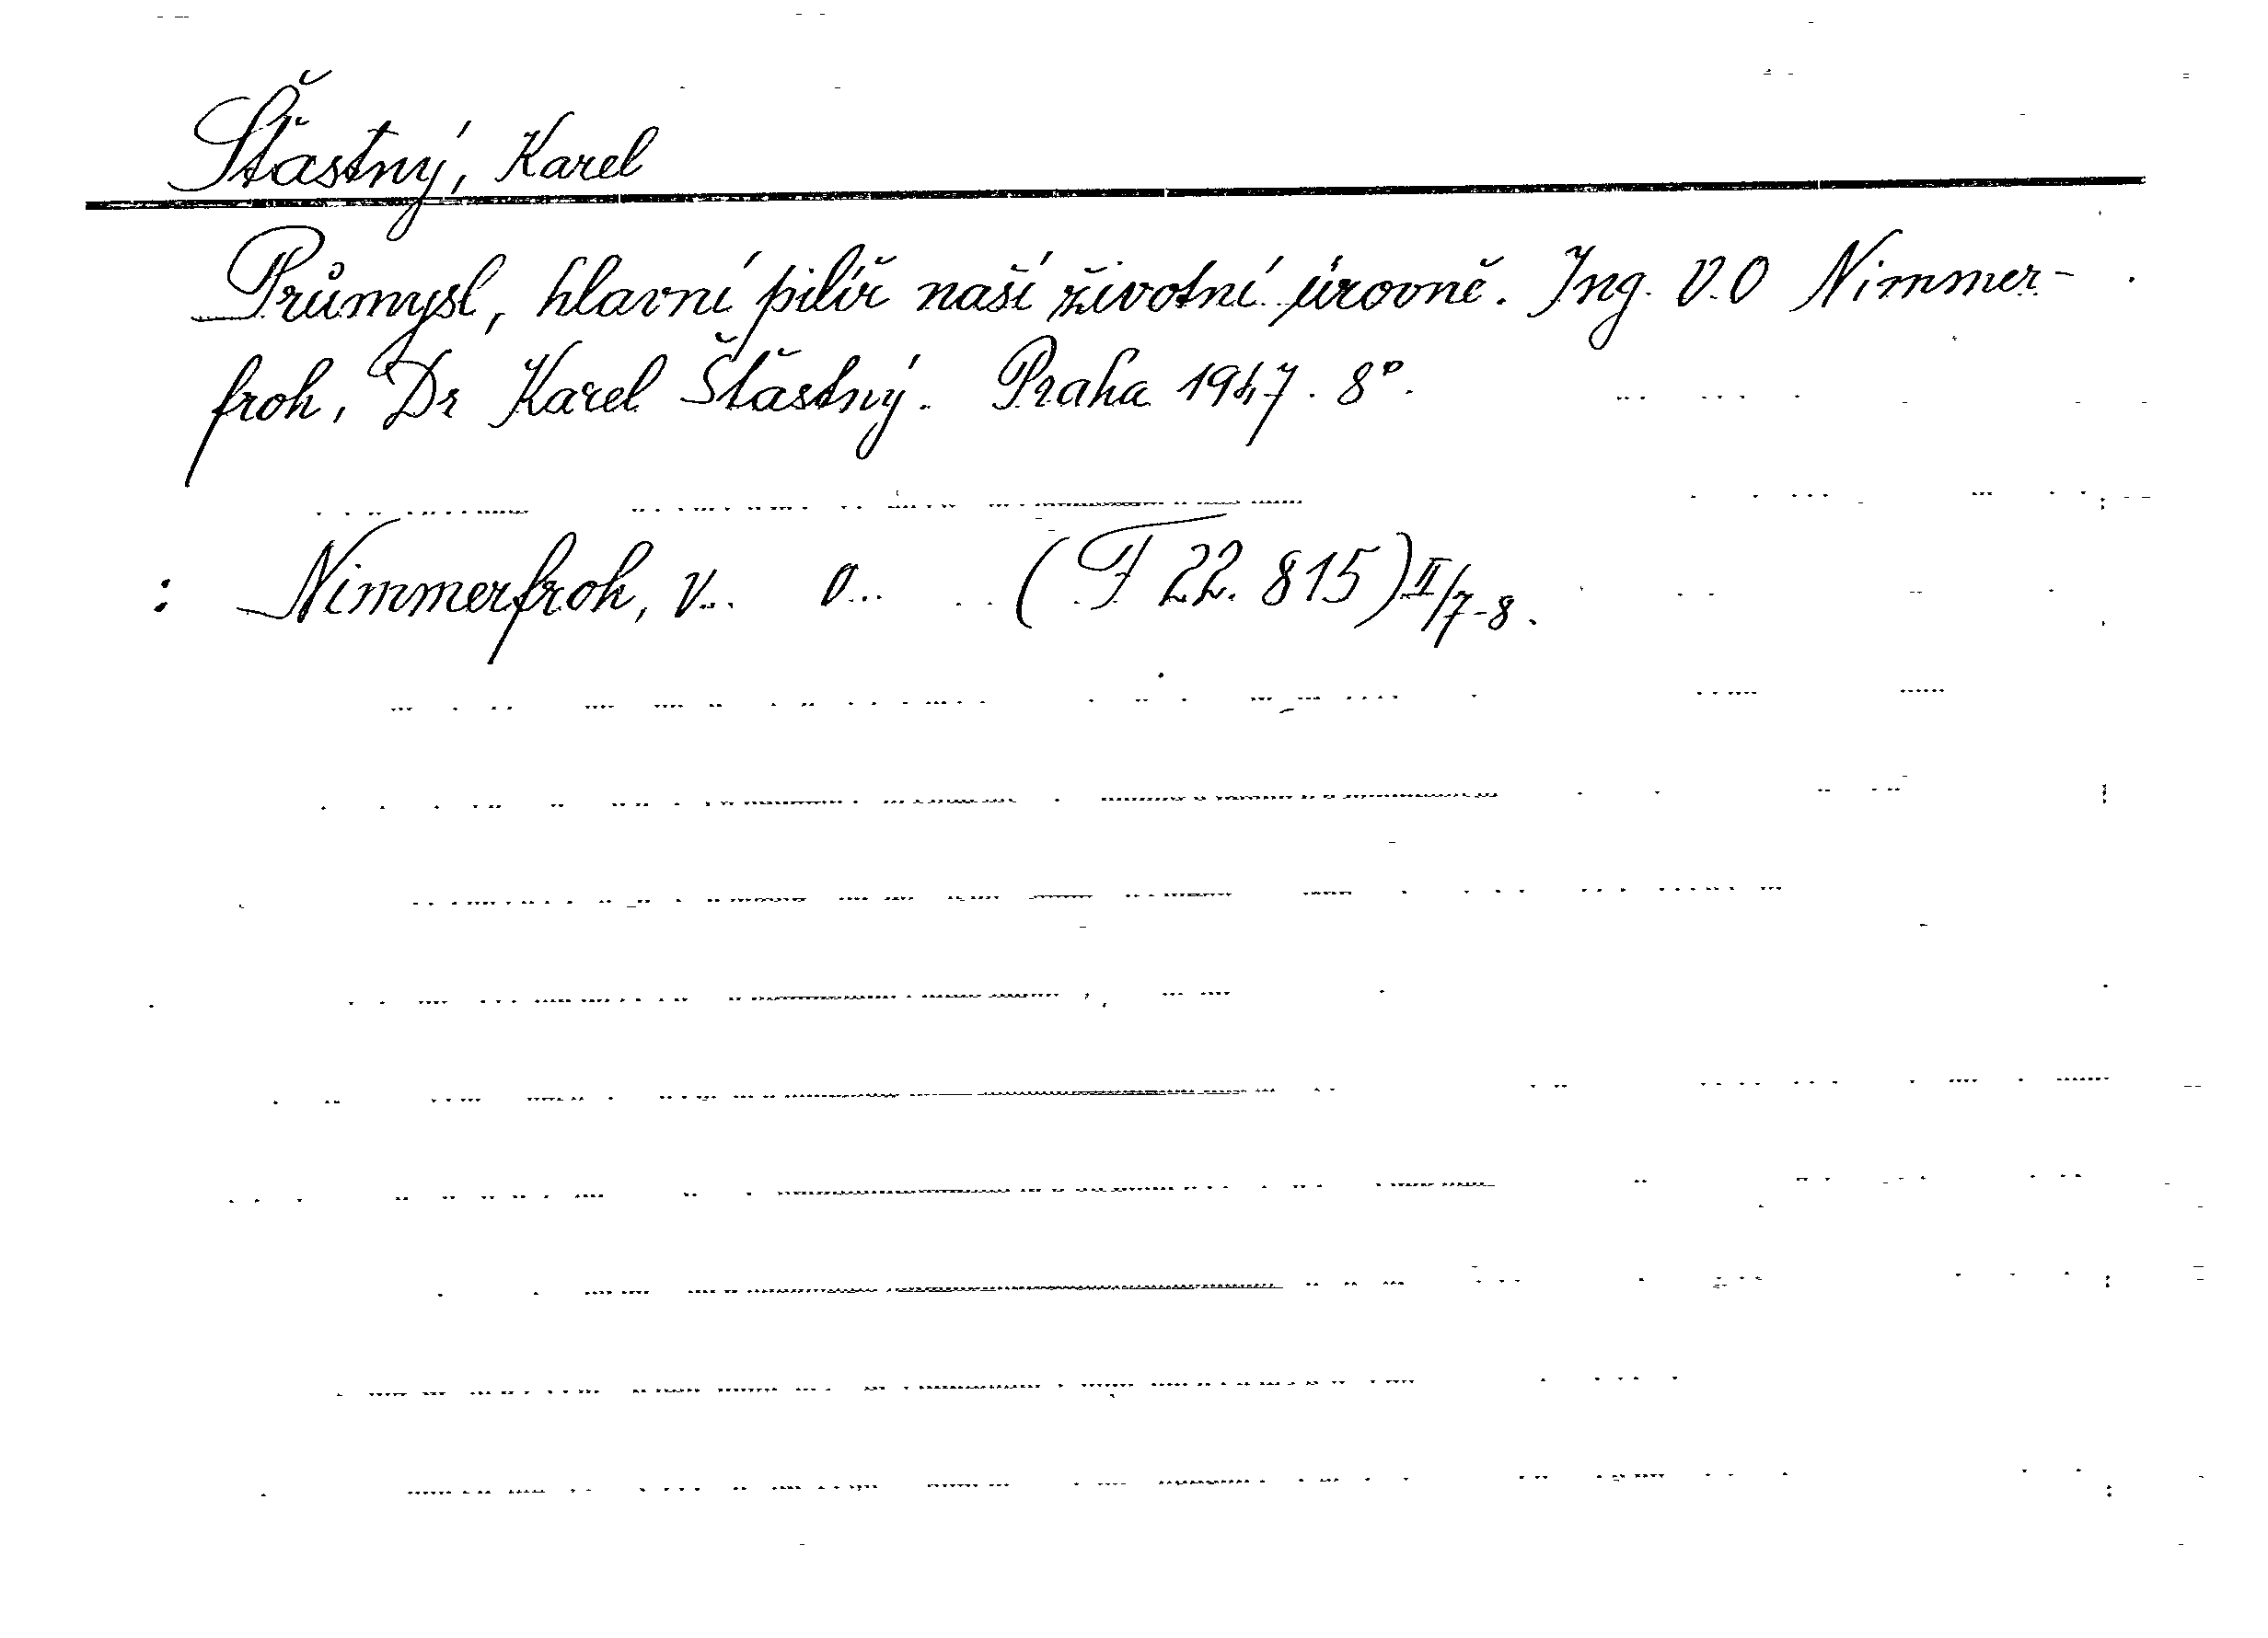 Šťastný, Karel
Průmysl, hlavní pilíř naší životní úrovně. Ing. V.O Nimmer-
froh, Dr Karel Šťastný. Praha 1947. 8°.
: Nimmerfroh, V... O... (F 22.815) II/7-8.